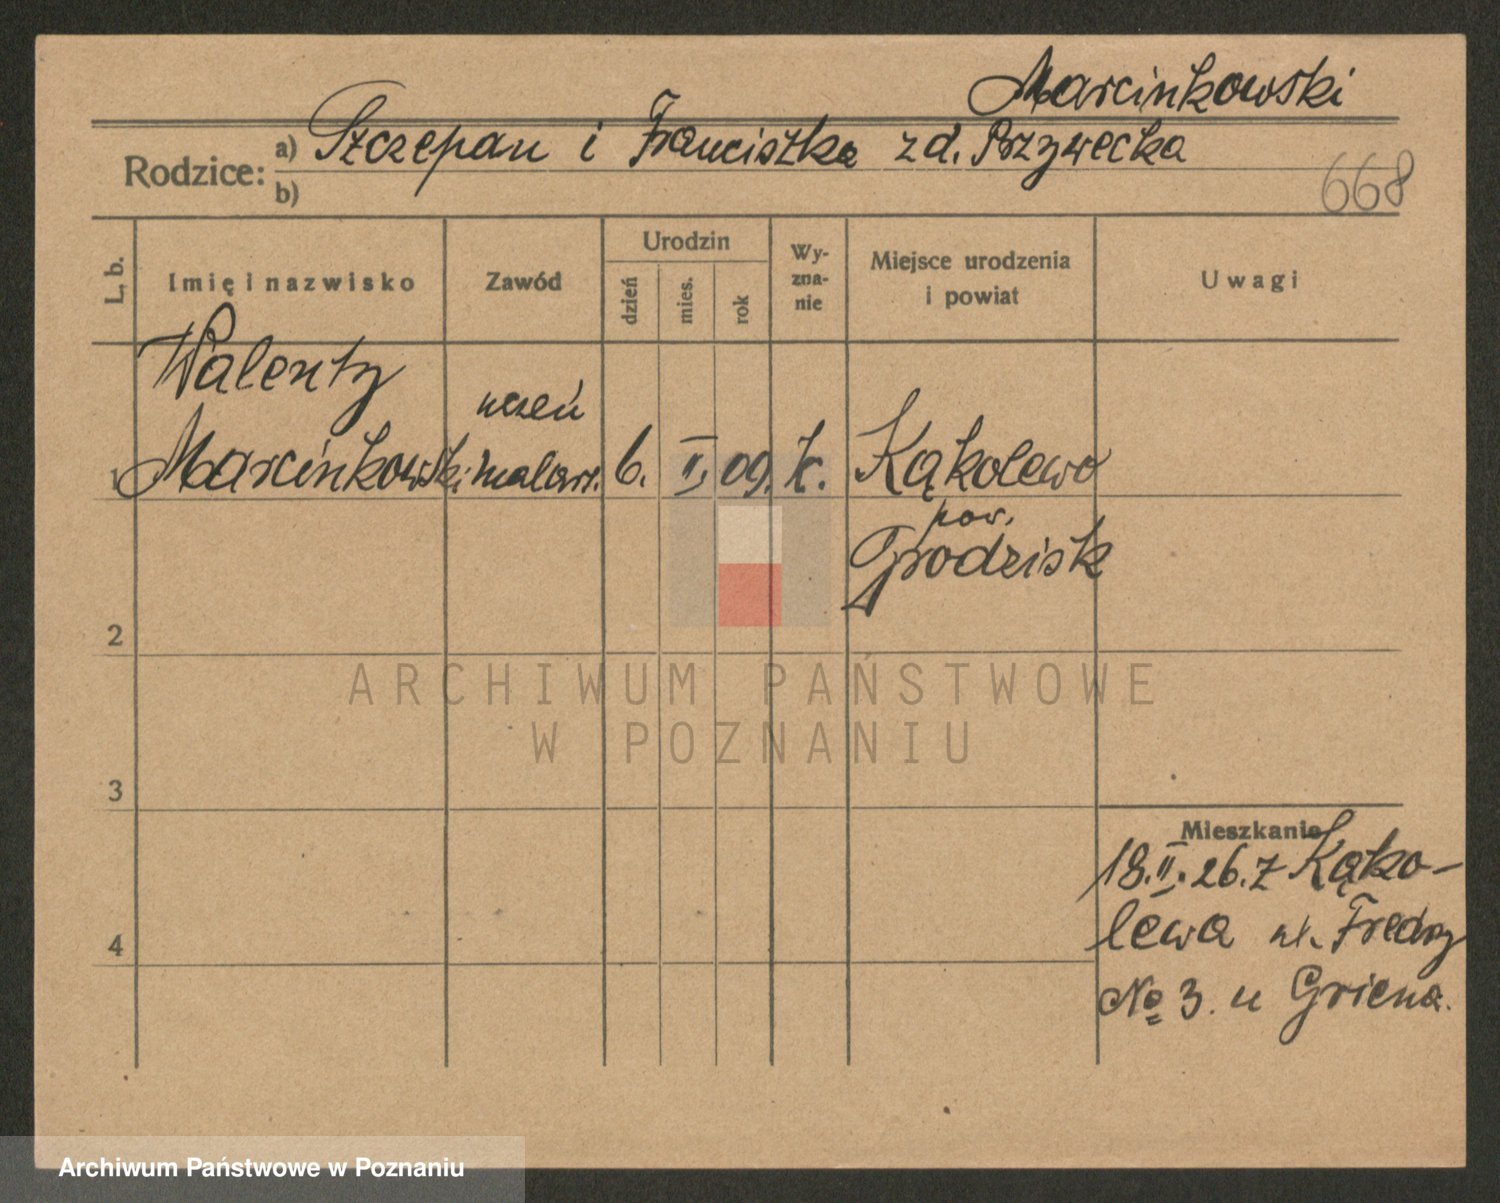 Marcinkowski
Rodzice: a) Szczepan i Franciszka zd. Przywecka
b)
668
L. b.
Imię i nazwisko
Zawód
Urodzin
dzień
mies.
rok
Wy-
zna-
nie
Miejsce urodzenia
i powiat
Uwagi
Walenty
uczeń
1 Marcinkowski malarz. 6. II. 09. k. Kąkolewo
pow.
Grodzisk
2
ARCHIWUM PAŃSTWOWE
W POZNANIU
3
Mieszkanie
18.II.26. z Kąko-
lewa ul. Fredry
4
No 3. u Griena.
Archiwum Państwowe w Poznaniu